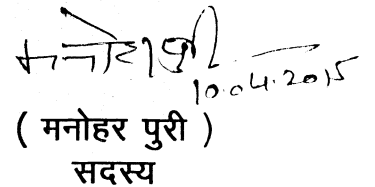 मनोहर पुरी
10.04.2015
( मनोहर पुरी )
सदस्य